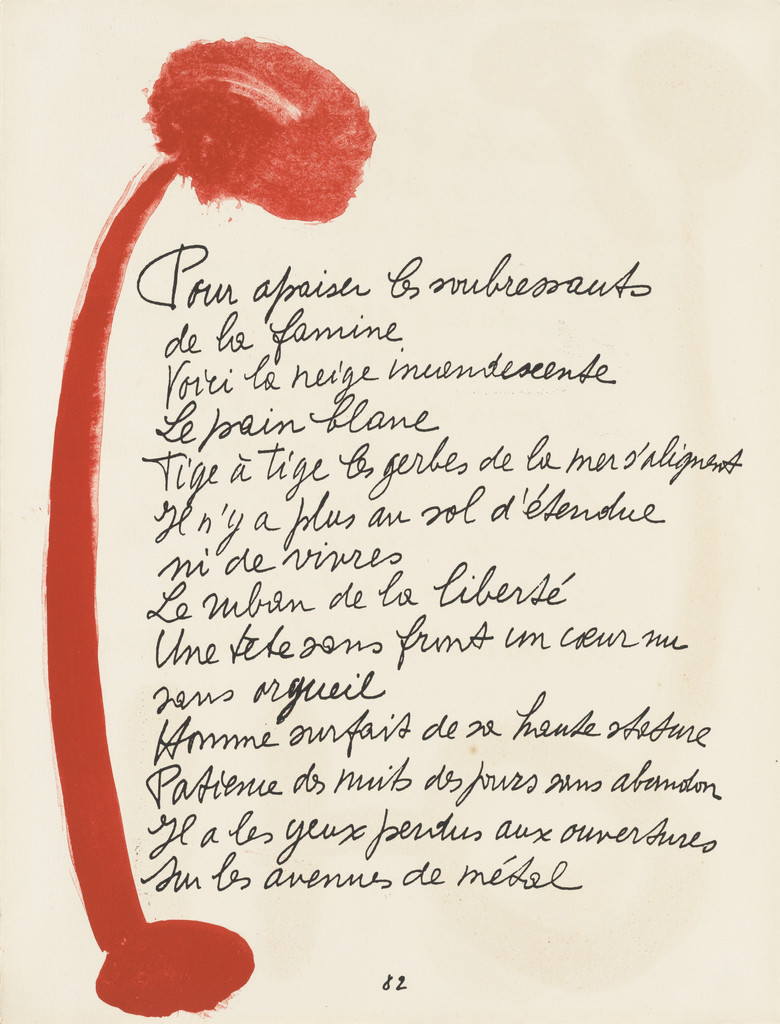 Pour apaiser les soubressauts
de la famine
Voici la neige incandescente
Le pain blanc
Tige à Tige les gerbes de la mer s'alignent
Il n'y a plus au sol d'étendue
ni de vivres
Le ruban de la liberté
Une tête sans front un cœur nu
sans orgueil
Homme surfait de sa haute stature
Patience des nuits des jours sans abandon
Il a les yeux perdus aux ouvertures
Sur les avenues de métal
82